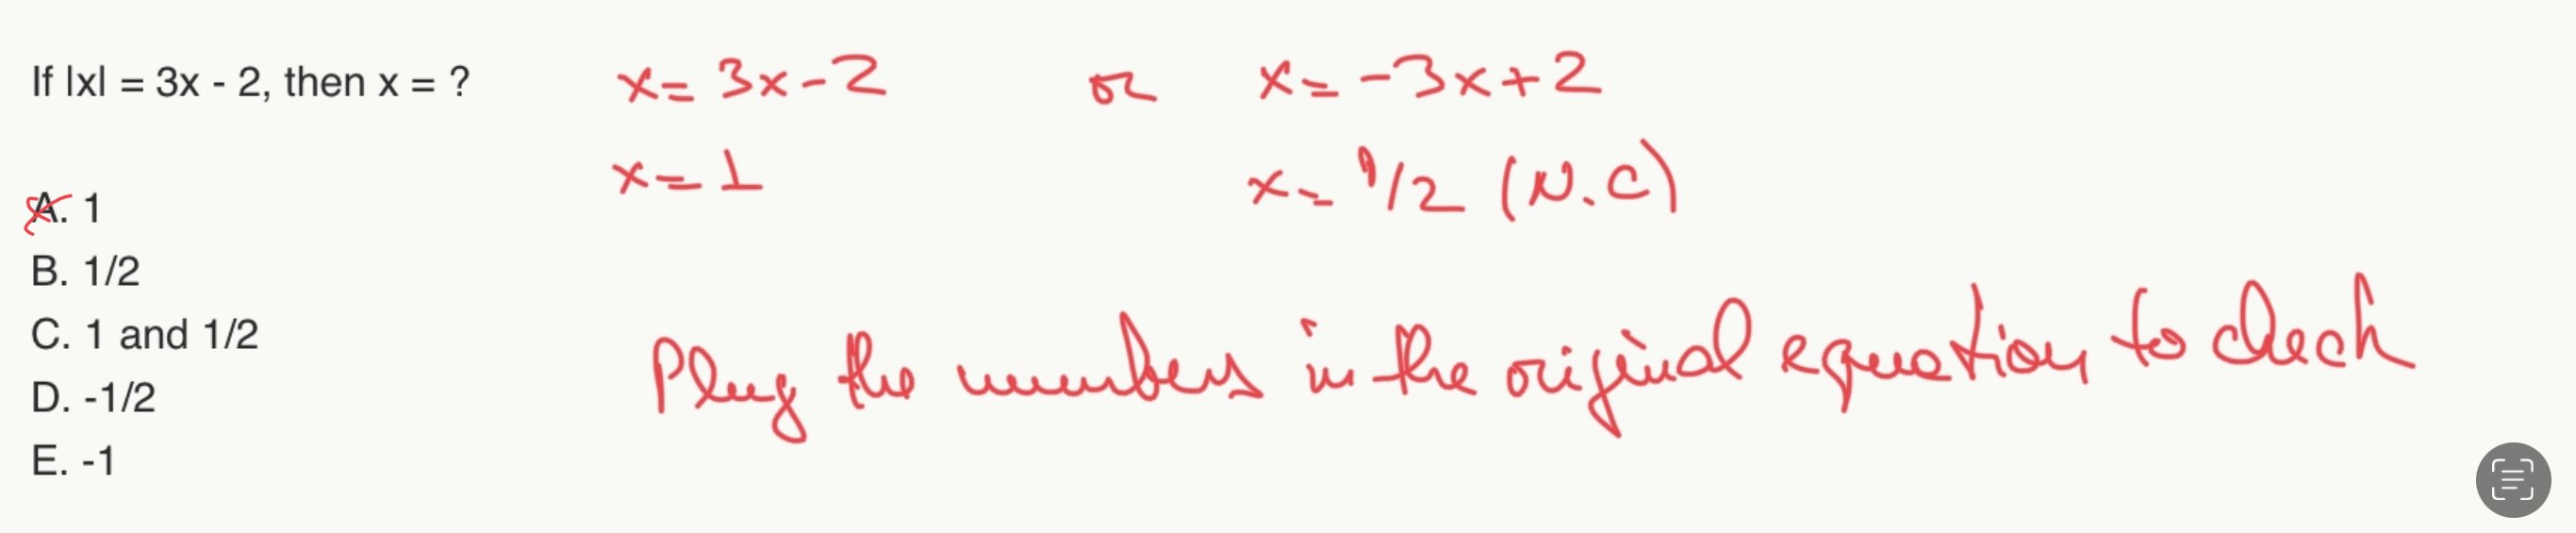 If |x| = 3x - 2, then x = ?
x = 3x - 2 or x = -3x + 2
x = 1 x = 1/2 (N.C)
A. 1
B. 1/2
C. 1 and 1/2
D. -1/2
E. -1
Plug the numbers in the original equation to check